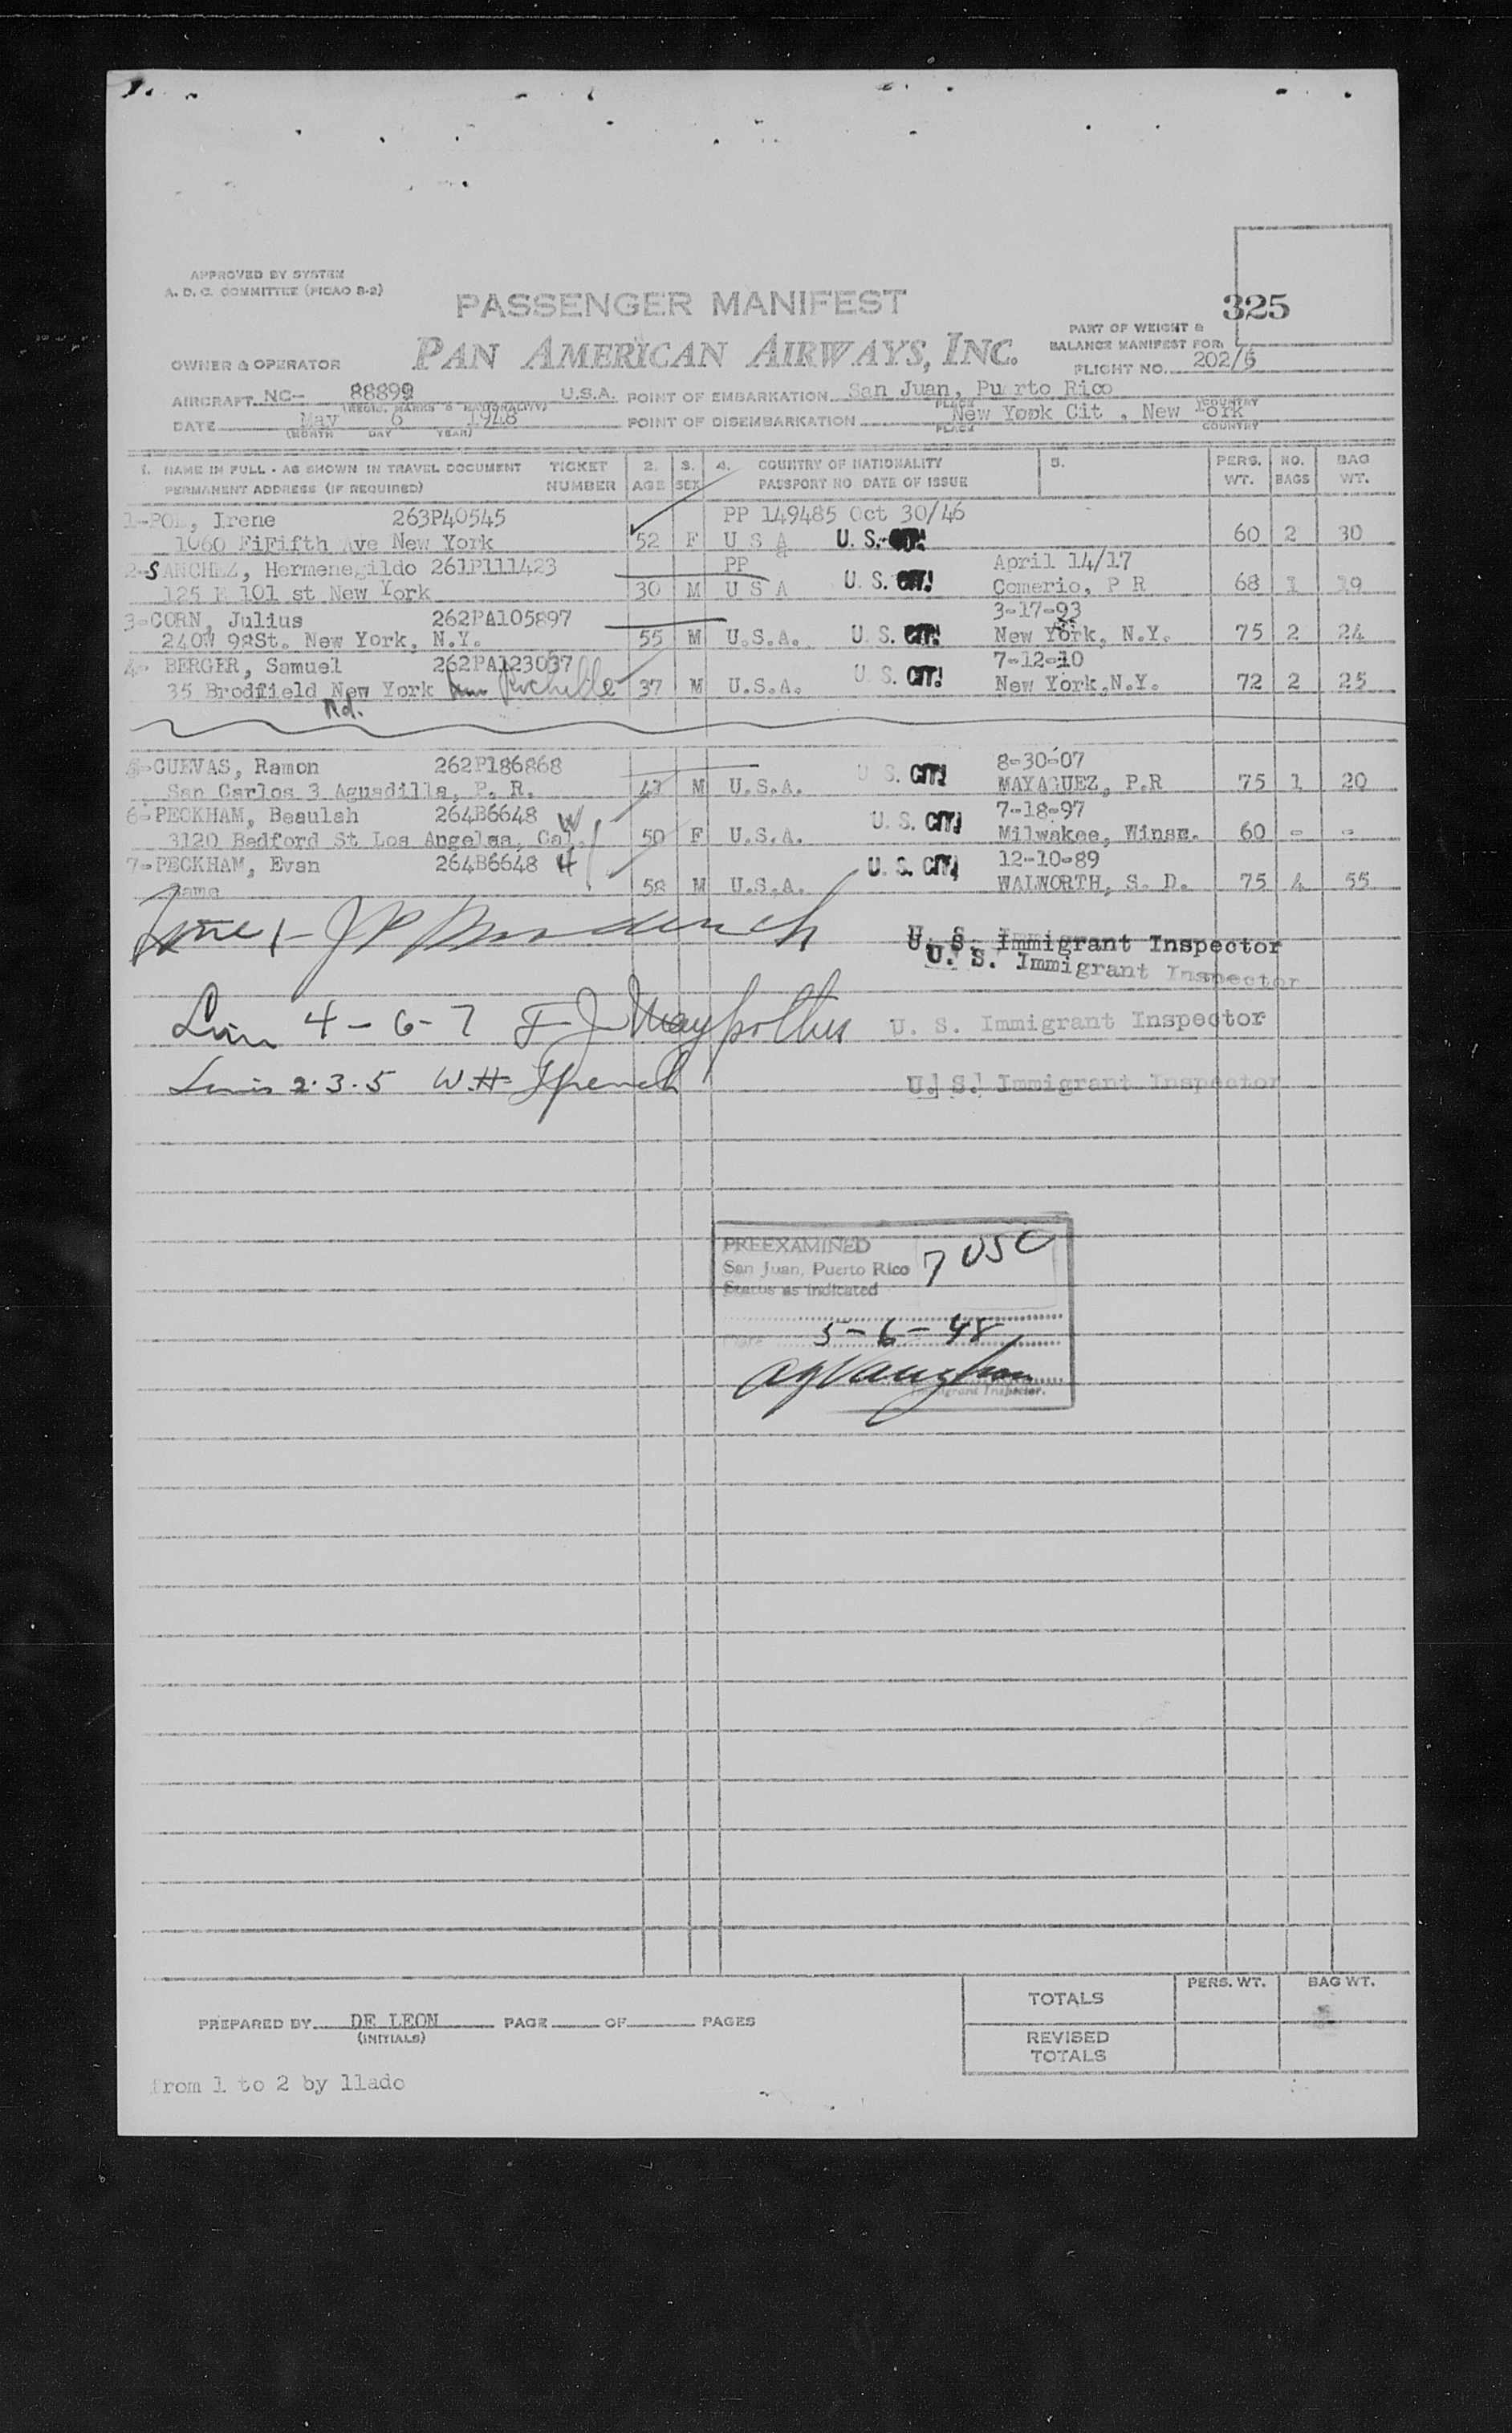 APPROVED BY SYSTEM
A. D. C. COMMITTEE (PICAO 8-2)
PASSENGER MANIFEST
325
PAN AMERICAN AIRWAYS, INC.
PART OF WEIGHT &
BALANCE MANIFEST FOR
OWNER & OPERATOR
FLIGHT NO. 202/6
AIRCRAFT NC- 88899 U.S.A. POINT OF EMBARKATION San Juan, Puerto Rico
(REGIS. MARKS & NATIONALITY) PLACE COUNTRY
DATE May 6 1948 POINT OF DISEMBARKATION New Yook Cit , New York
(MONTH DAY YEAR) PLACE COUNTRY
1. NAME IN FULL - AS SHOWN IN TRAVEL DOCUMENT TICKET 2. 3. 4. COUNTRY OF NATIONALITY 5. PERS. NO. BAG
PERMANENT ADDRESS (IF REQUIRED) NUMBER AGE SEX PASSPORT NO DATE OF ISSUE WT. BAGS WT.
1-POL, Irene 263P40545 PP 149485 Oct 30/46
1060 FiFifth Ave New York 52 F U S A U. S. CIT! 60 2 30
2-SANCHEZ, Hermenegildo 261P111423 PP April 14/17
125 E 101 st New York 30 M U S A U. S. CIT! Comerio, P R 68 1 19
3-CORN, Julius 262PA105897 3-17-93
240W 98St. New York, N.Y. 55 M U.S.A. U. S. CIT! New York, N.Y. 75 2 24
4- BERGER, Samuel 262PA123037 7-12-10
35 Brodfield New York New Rochelle 37 M U.S.A. U. S. CIT! New York,N.Y. 72 2 25
Rd.
5-CUEVAS, Ramon 262P186868 8-30-07
San Carlos 3 Aguadilla, P. R. 41 M U.S.A. U S. CIT! MAYAGUEZ, P.R 75 1 20
6-PECKHAM, Beaulah 264B6648 W 7-18-97
3120 Bedford St Los Angeles, Cal. 50 F U.S.A. U. S. CIT! Milwakee, Winsn. 60 - -
7-PECKHAM, Evan 264B6648 H 12-10-89
Same 58 M U.S.A. U. S. CIT! WALWORTH, S. D. 75 4 55
Line 1- J P
U. S. Immigrant Inspector
U. S. Immigrant Inspector
Line 4-6-7 F J U. S. Immigrant Inspector
Lines 2.3.5 W.H. French U. S. Immigrant Inspector
PREEXAMINED 7 USC
San Juan, Puerto Rico
Status as indicated
Date 5-6-48
Immigrant Inspector.
PERS. WT. BAG WT.
TOTALS
PREPARED BY DE LEON PAGE OF PAGES
(INITIALS)
REVISED
TOTALS
from 1 to 2 by llado